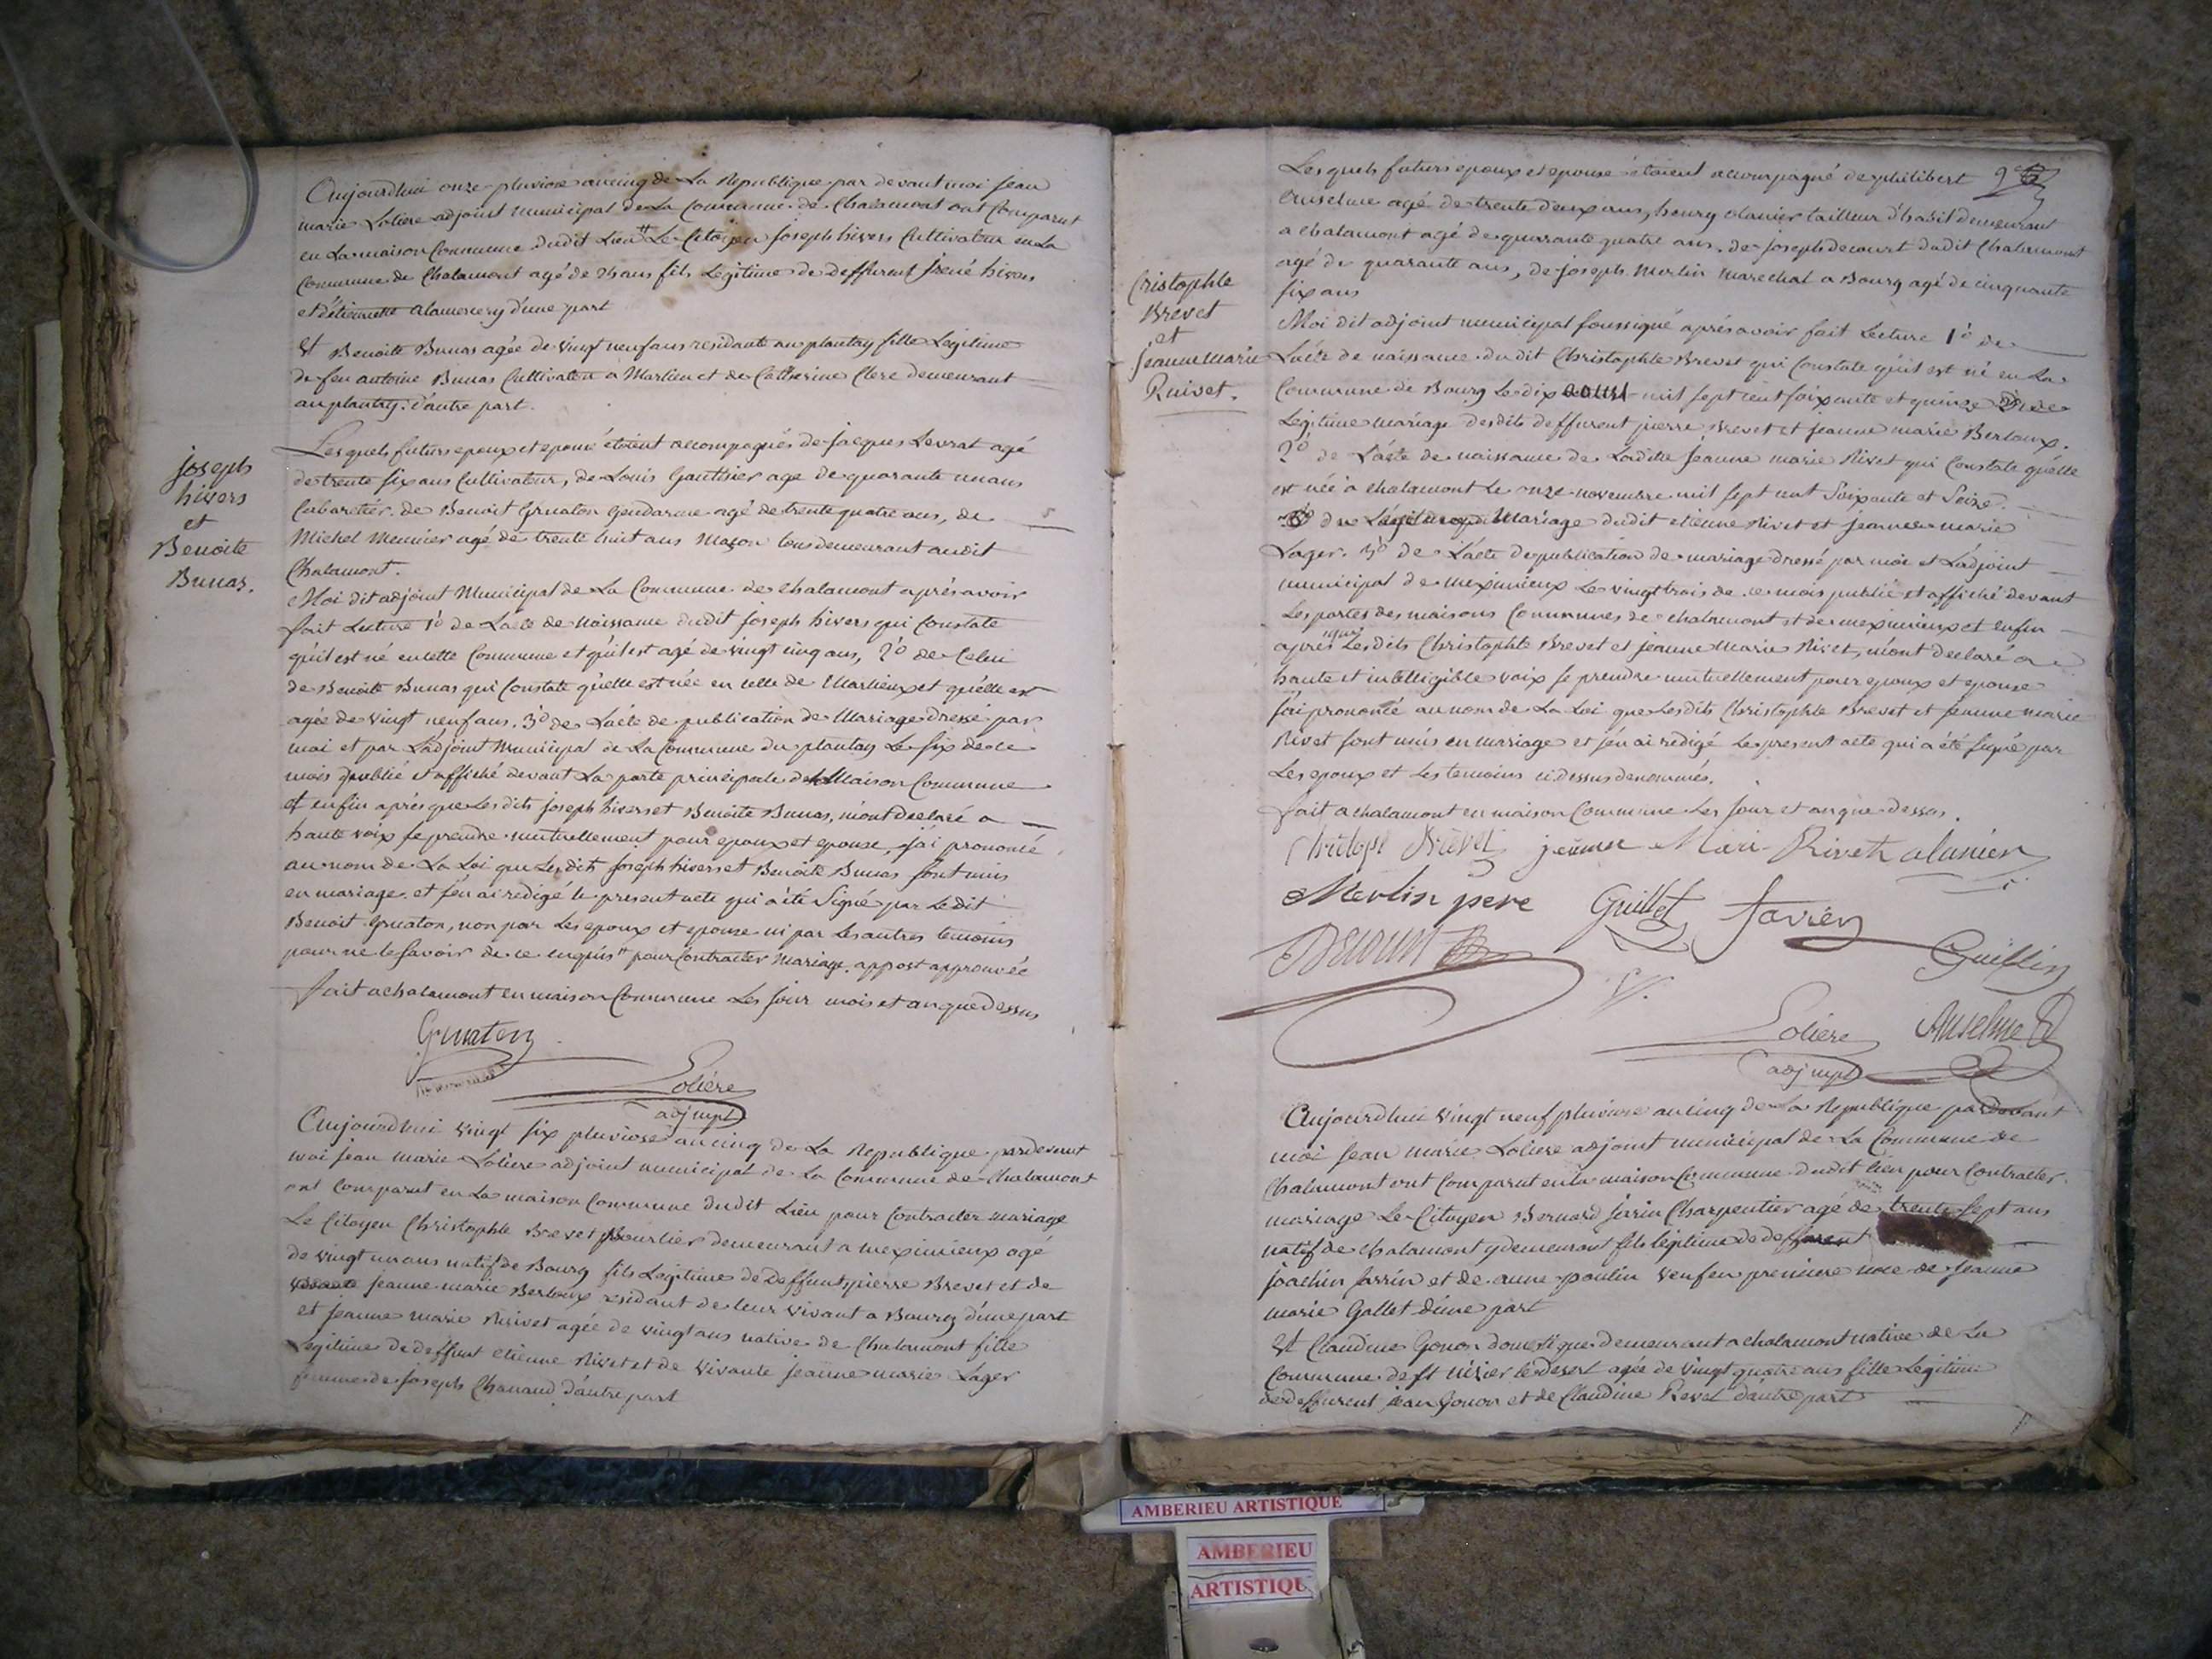 Aujourdhui onze pluviose an cinq de La Republique par devant moi jean
marie Loliere adjoint municipal de La Commune de Chalamont ont Comparut
en La maison Commune dudit Lieu # Le Citoyen joseph hivers Cultivateur en La
Commune de Chalamont agé de ans fils Legitime de deffunt hivers
et d'étiennette d'une part
Et Benoite Bunas agée de vingt neuf ans residante au plantay fille Legitime
de feu antoine Bunas Cultivateur a Marlieu et de Catherine Clerc demeurant
au plantay d'autre part.
joseph
hivers
et
Benoite
Bunas.
Lesquels futurs epoux et epouse étoient accompagnés de jacques Levrat agé
de trente six ans Cultivateur, de Louis Gautthier age de quarante un ans
Cabaretier. de Benoit Gruaton Gendarme agé de trente quatre ans, de
Michel Meunier agé de trente huit ans Maçon tous demeurant audit
Chalamont.
Moi dit adjoint Municipal de La Commune de Chalamont aprés avoir
fait Lecture 1° de Lacte de Naissance dudit joseph hivers qui Constate
qu'il est né en cette Commune et qu'il est agé de vingt cinq ans, 2° de Celui
de Benoite Bunas qui Constate qu'elle est née en celle de Marlieux et qu'elle est
agée de vingt neuf ans. 3° de Lacte de publication de Mariage dressé par
moi et par L'adjoint Municipal de La Commune du plantay Le six de ce
mois publié et affiché devant La porte principale de la Maison Commune
et enfin aprés que Les dits joseph hivers et Benoite Bunas, m'ont declaré a
haute voix se prendre mutuellement pour epoux et epouse, j'ai prononcé
au nom de La Loi que Les dits joseph hivers et Benoite Bunas sont unis
en mariage. et j'en ai redigé le present acte qui a été Signé par Ledit
Benoit Gruaton, non par Les epoux et epouse ni par Les autres temoins
pour ne le savoir de ce enquis # pour Contracter Mariage. appost approuvée
fait a chalamont en maison Commune Les jour mois et an que dessus
Gruaton
Loliere
adj mpl
Aujourdhui vingt six pluviose an cinq de La Republique pardevant
moi jean Marie Loliere adjoint municipal de La Commune de Chalamont
ont Comparut en La maison Commune dudit Lieu pour Contracter mariage
Le Citoyen Christophle Brevet Bourlier demeurant a meximieux agé
de vingt un ans natif de Bourg fils Legitime de Deffunts pierre Brevet et de
jeanne marie Berloux residant de leur vivant a Bourg d'une part
et jeanne marie Rivet agée de vingt ans native de Chalamont fille
Legitime de deffunt etienne Rivet et de vivante jeanne marie Lager
femme de joseph Chanaud d'autre part
Cristophle
Brevet
et
jeanne Marie
Ruivet.
Lesquels futurs epoux et epouse étoient accompagné de philibert
Anselme agé de trente deux ans, henry alanier tailleur d'habit demeurant
a chalamont agé de quarante quatre ans. de joseph decourt dudit Chalamont
agé de quarante ans, de joseph Merlin Marechal a Bourg agé de cinquante
six ans
Moi dit adjoint municipal soussigné aprés avoir fait Lecture 1° de
Lacte de naissance dudit Christophle Brevet qui Constate qu'il est né en La
Commune de Bourg Le dix aoust mil sept cent soixante et quinze de
Legitime mariage desdits deffurent pierre Brevet et jeanne marie Berloux.
2° de L'acte de naissance de Ladite jeanne marie Rivet qui Constate qu'elle
est née a chalamont Le onze novembre mil sept cent Soixante et Seize
du Légitime Mariage dudit etienne Rivet et jeanne marie
Lager. 3° de L'acte de publication de mariage dressé par moi et L'adjoint
municipal de meximieux Le vingt trois de ce mois publié et affiché devant
Les portes des maisons Communes de chalamont et de meximieux et enfin
aprés que Lesdits Christophle Brevet et jeanne Marie Rivet, m'ont declaré a
haute et intelligible voix se prendre mutuellement pour epoux et epouse
j'ai prononcé au nom de La Loi que Lesdits Christophle Brevet et jeanne marie
Rivet sont unis en mariage et j'en ai redigé Le present acte qui a été signé par
Les epoux et Les temoins ci dessus denommés.
fait a chalamont en maison Commune Les jour et an que dessus.
Brevet jeanne Mari Rivet alanier
Merlin pere Guillot favier
Decourt Guillin
Loliere Anselme
adj mpl
Aujourdhui vingt neuf pluviose an cinq de La Republique pardevant
moi jean marie Loliere adjoint municipal de La Commune de
Chalamont ont Comparut en la maison Commune dudit lieu pour Contracter
mariage Le Citoyen Bernard jarrin Charpentier agé de trente sept ans
natif de chalamont y demeurant fils legitime de deffurent
joachin jarrin et de anne poulin veuf en premiere noce de jeanne
marie Gallet d'une part
Et Claudine Gonon domestique demeurant a chalamont native de La
Commune de st nizier le desert agée de vingt quatre ans fille Legitime
de deffurent jean Gonon et de Claudine Revel d'autre part
AMBERIEU ARTISTIQUE
AMBERIEU
ARTISTIQU